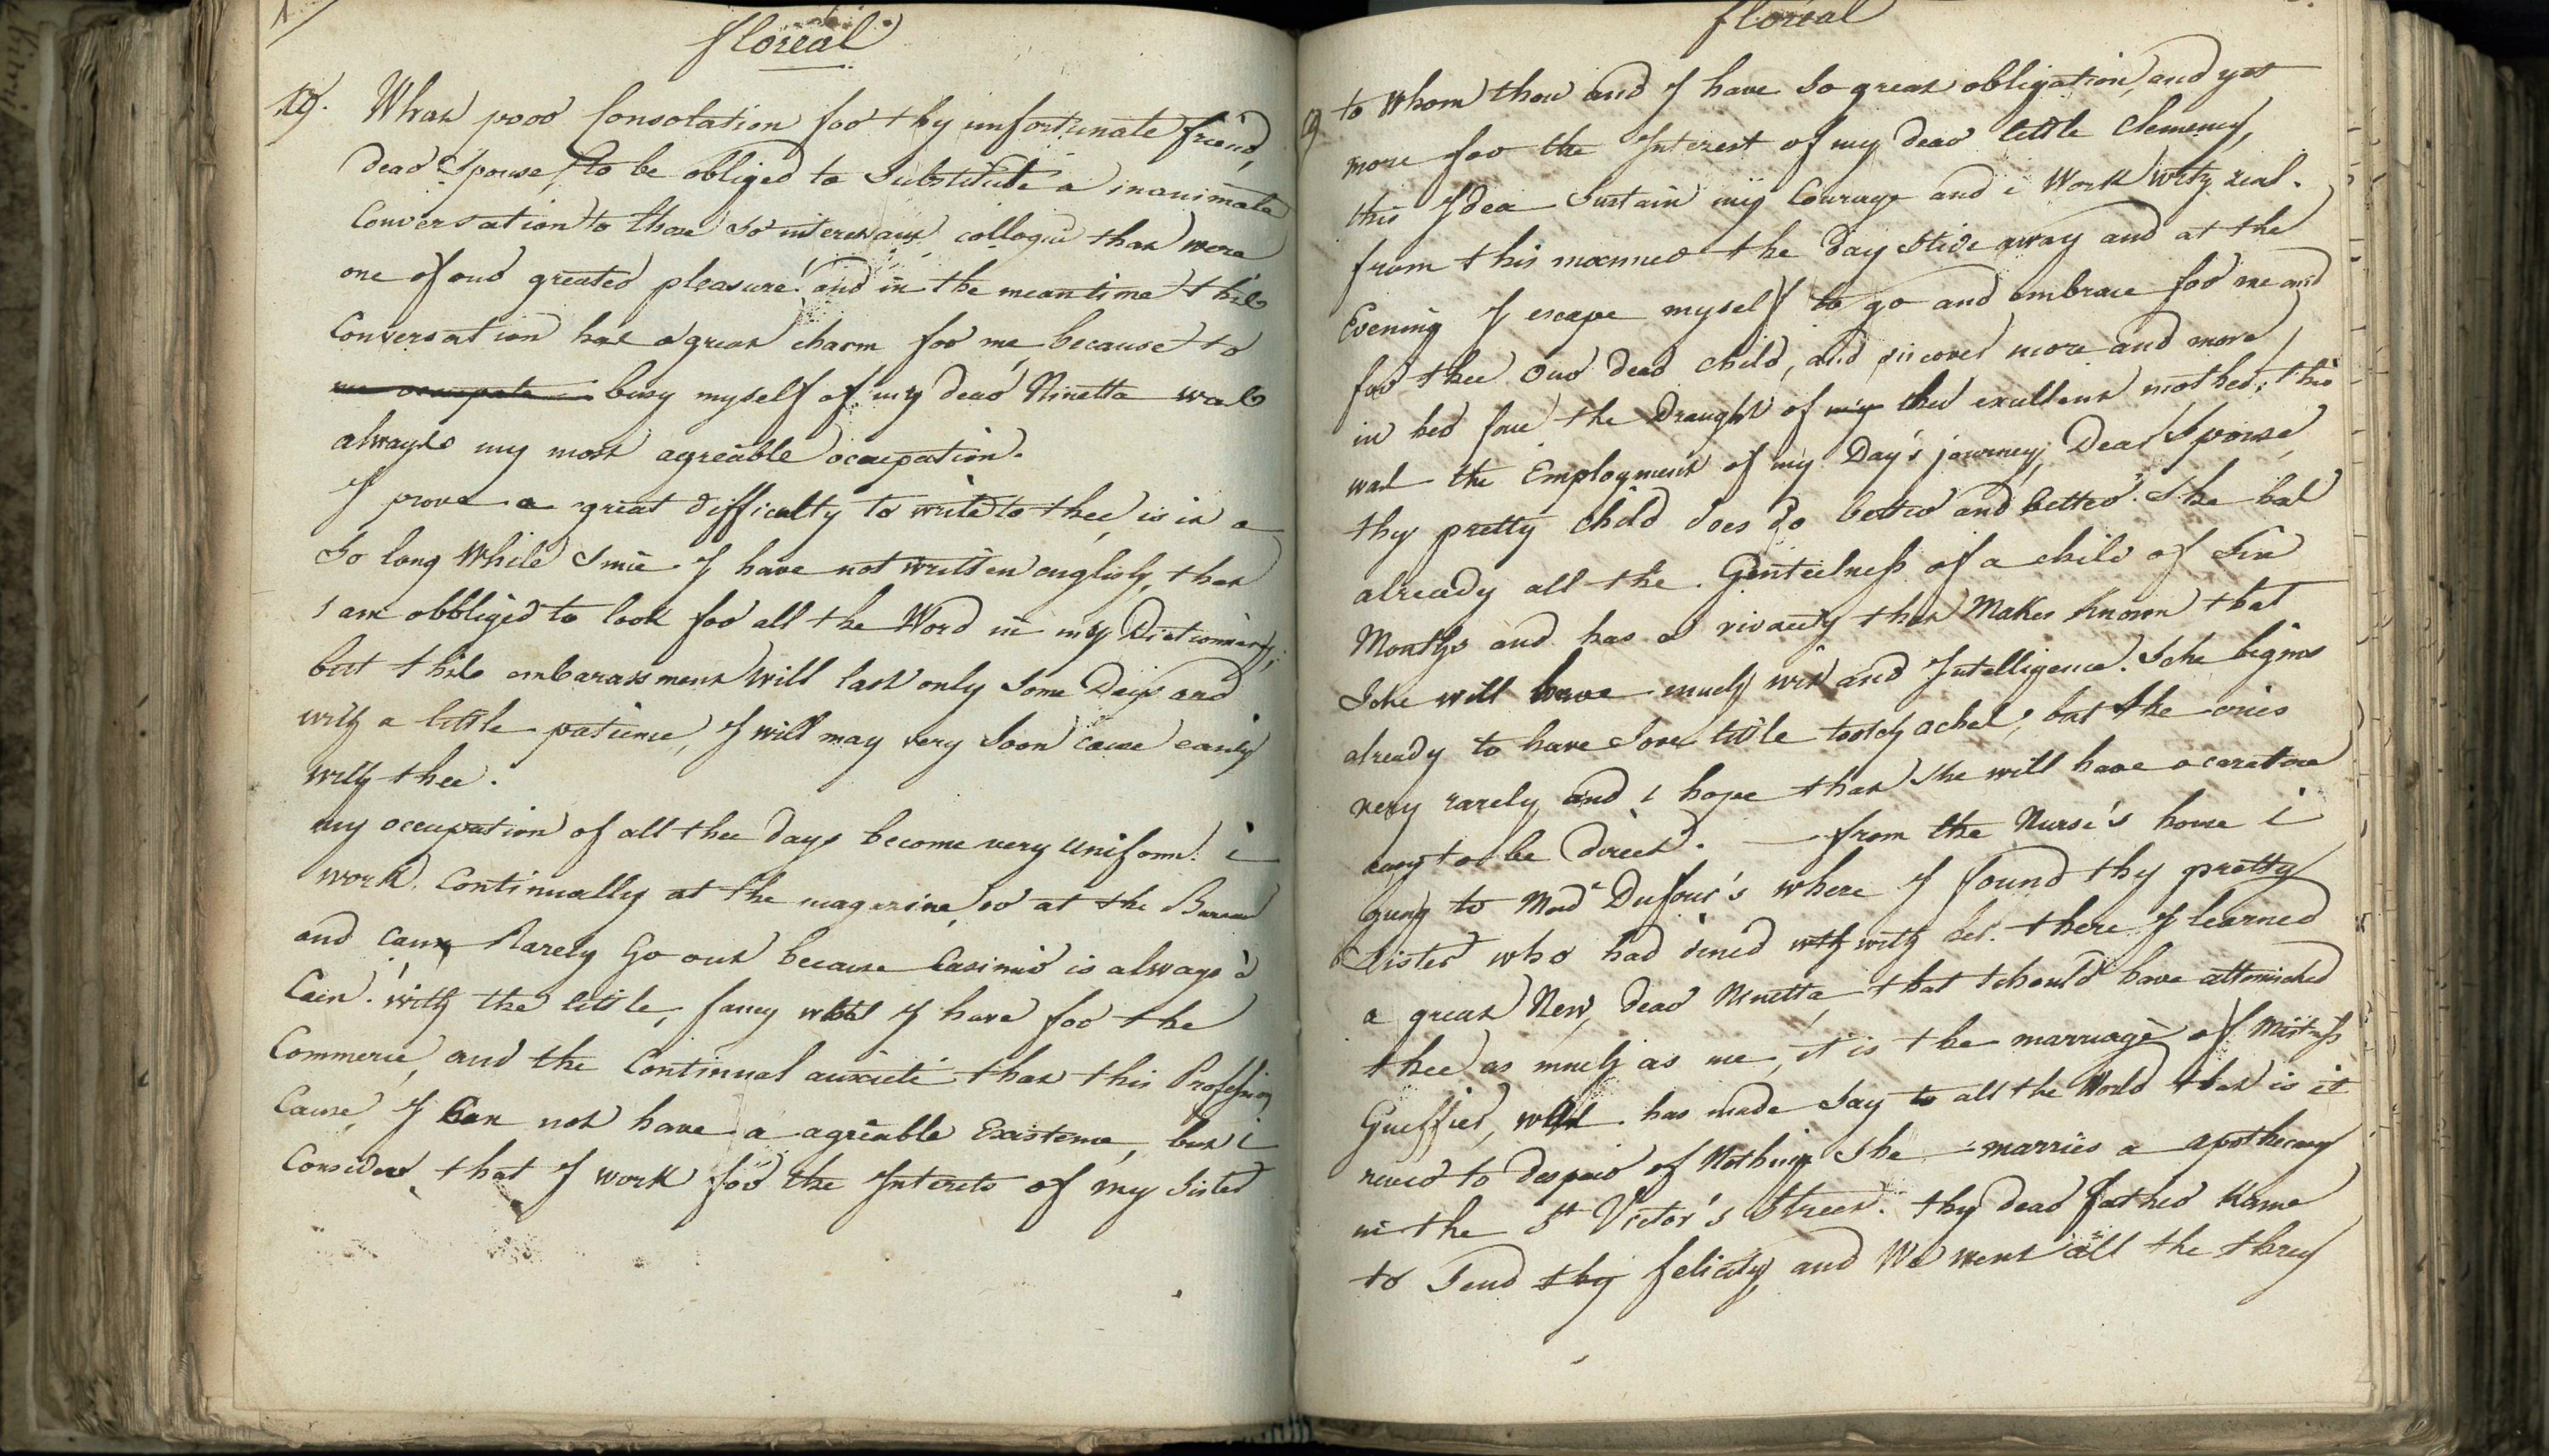 floreal
19. What poor Consolation for thy unfortunate friend,
dear Spouse, to be obliged to Substitute a inanimate
Conversation to those so interesant colloqui that were
one of our greater pleasure! and in the meantime this
Conversation has a great charm for me, because to
me occupate busy myself of my dear Ninetta was
always my most agreable occupation.
I prove a great difficulty to write to thee, is is a
So long While Since I have not written english, that
i am obbliged to look for all the Word in my Dictionnary,
but this embarassment will last only Some Days and
with a little patience, I will may very Soon cause easily
with thee.
my occupation of all thee days become very uniform. i
work Continually at the magazine, or at the Bureau
and can Rarely Go out because Casimir is always à
Caen. with the little, fancy what I have for the
Commerce, and the Continual anxieté that this Profession
Cause, I Can not have a agréable Existence, but i
Consider that I work for the Interets of my Sister
floreal
19 to Whom thou and I have So great obligation, and yet
more for the Interest of my dear little Clemency,
this Idea Sustain my Courage and i Work with zeal.
from this manner the day Slide away and at the
Evening I escape myself to go and embrace for me and
for thee Our dear Child, and discover more and more
in her face the Draught of my ther excellent mother; this
was the Employment of my Day's journey, Dear Spouse,
thy pretty Child does do better and better. She has
already all the Genteelness of a child of Six
Months and has a vivacity that Makes Known that
She will have much wit and Intelligence. She begins
already to have Some little tooth aches, but She cries
very rarely and i hope that She will have a caractere
easy to be direct. — from the Nurse's house i
gung to Mad.e Dufour's where I found thy pretty
Sister who had dined with with her. there I learned
a great New, Dear Ninetta, that Should have attonished
thee as much as me, it is the marriage of Mistriss
Gueffier, what has made Say to all the World that is it
never to despair of Nothing She marries a apothecary
in the St Victor's Street. thy dear father Kame
to Send thy felicity and We went all the three